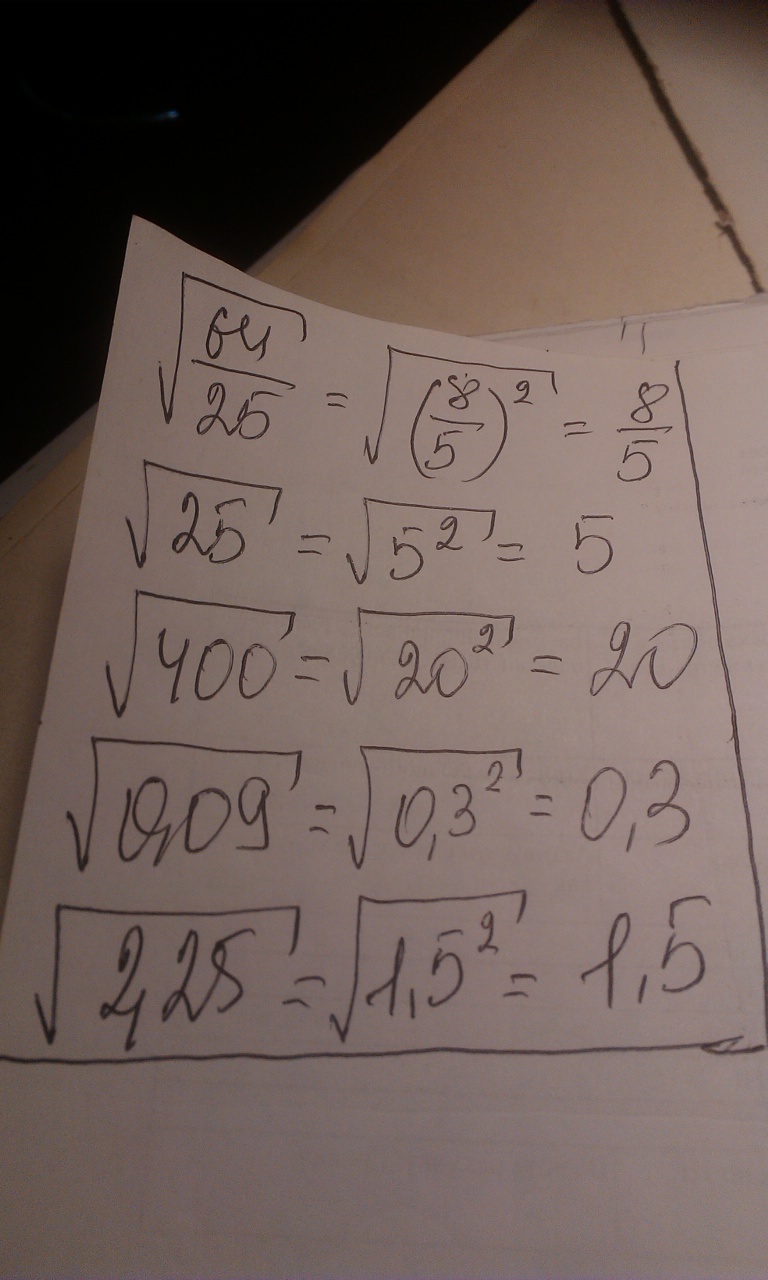 √(64/25) = √((8/5)²) = 8/5
√25 = √5² = 5
√400 = √20² = 20
√0,09 = √0,3² = 0,3
√2,25 = √1,5² = 1,5